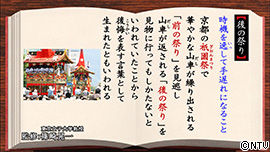 【後の祭り】
時機を逸して手遅れになること
京都の祇園祭で
華やかな山車が繰り出される
「前の祭り」を見逃し
山車が返される「後の祭り」を
見物に行ってもしかたないと
いわれていたことから
後悔を表す言葉として
生まれたともいわれる
©NTV